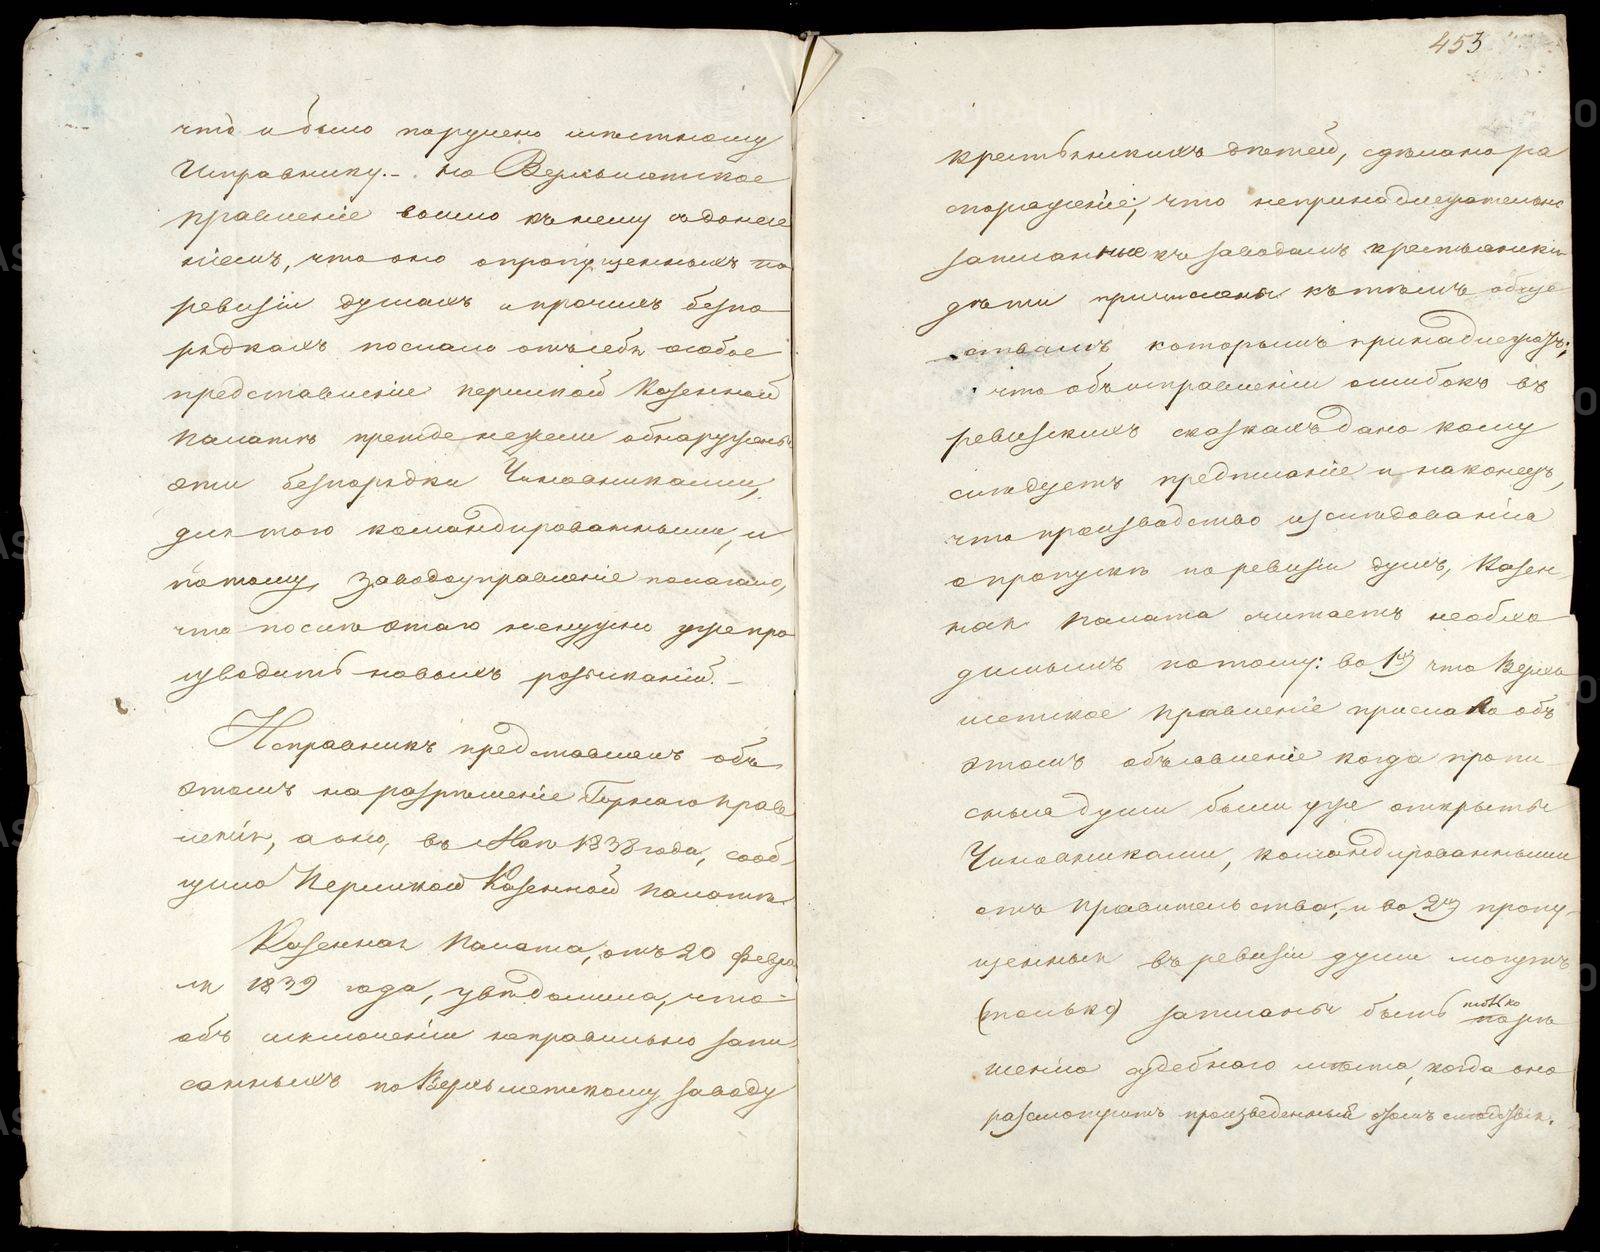 что и было поручено местному
Исправнику. - Но Верхъисетское
правление вошло къ нему съ донесе
ніемъ, что оно о пропущенныхъ по
ревизіи душахъ и прочихъ безпо
рядкахъ послало отъ себя особое
представленіе Пермской Казенной
Палатѣ прежде нежели обнаружены
эти безпорядки Чиновниками,
для того командированными, и
потому, Заводоуправленіе полагало,
что послѣ этаго ненужно уже про
изводить новыхъ розысканій. -
Исправникъ представлялъ объ
этомъ на разрѣшеніе Горнаго Прав
ленія, а оно, въ Маѣ 1838 года, сооб
щило Пермской Казенной Палатѣ.
Казенная Палата, отъ 20 Февра
ля 1839 года, увѣдомила, что
объ исключеніи неправильно запи
санныхъ по Верхъисетскому заводу
453
крестьянскихъ дѣтей, сдѣлано ра
споряженіе, что непринадлежательно
записанные къ заводамъ крестьянскія
дѣти причислены къ тѣмъ обще
ствамъ которымъ принадлежатъ;
что объ исправленіи ошибокъ въ
ревизскихъ сказкахъ дано кому
слѣдуетъ предписаніе и наконецъ,
что производство изслѣдованія
о пропускѣ по ревизіи душъ, Казен
ная Палата считаетъ необхо
димымъ потому: во 1хъ что Верхъ
исетское Правленіе прислало объ
этомъ объявленіе когда пропи
сныя души были уже открыты
Чиновниками, командированными
отъ Правительства, и во 2хъ пропу
щенныя въ ревизіи души могутъ
(только) записаны быть только по рѣ
шенію судебнаго мѣста, когда оно
разсмотритъ произведенный о томъ